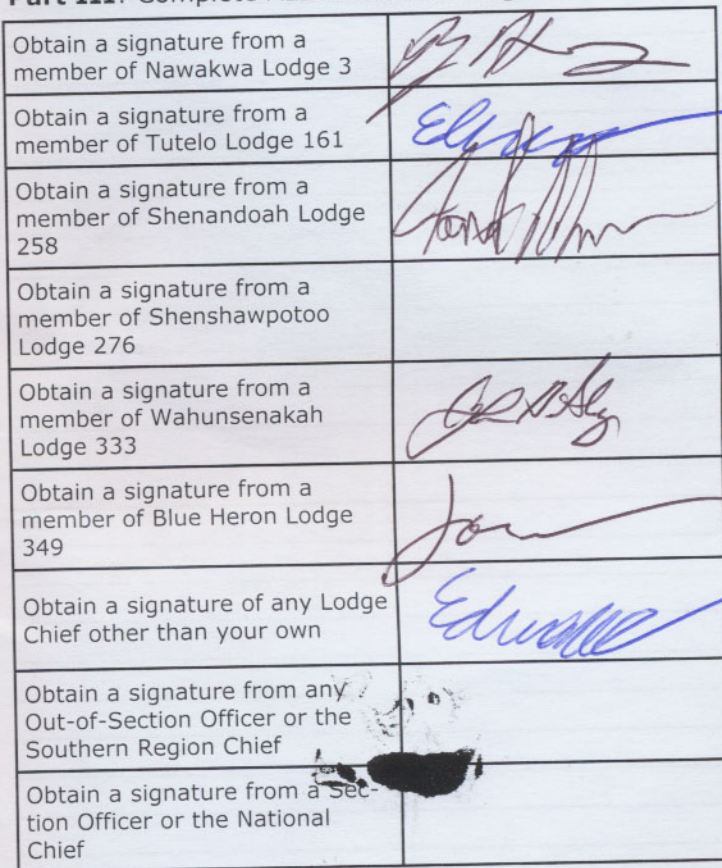 Part III: Complete
Obtain a signature from a
member of Nawakwa Lodge 3
Obtain a signature from a
member of Tutelo Lodge 161
Obtain a signature from a
member of Shenandoah Lodge
258
Obtain a signature from a
member of Shenshawpotoo
Lodge 276
Obtain a signature from a
member of Wahunsenakah
Lodge 333
Obtain a signature from a
member of Blue Heron Lodge
349
Obtain a signature of any Lodge
Chief other than your own
Obtain a signature from any
Out-of-Section Officer or the
Southern Region Chief
Obtain a signature from a Sec-
tion Officer or the National
Chief